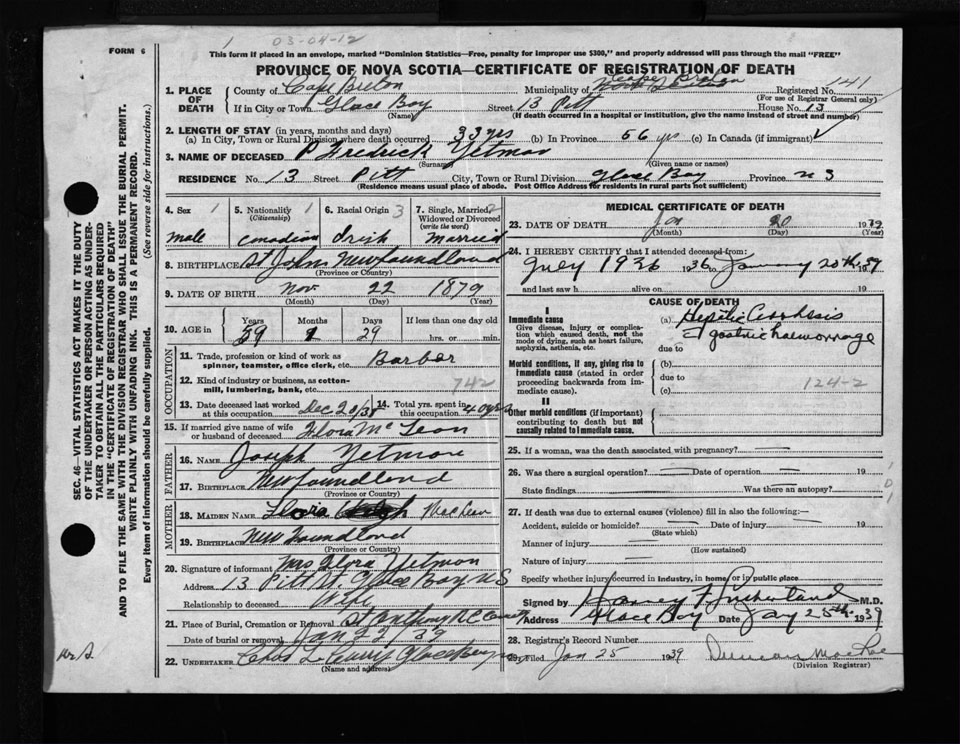 03-04-12
FORM 6
1
This form if placed in an envelope, marked "Dominion Statistics—Free, penalty for improper use $300," and properly addressed will pass through the mail "FREE"
PROVINCE OF NOVA SCOTIA—CERTIFICATE OF REGISTRATION OF DEATH
SEC. 46—VITAL STATISTICS ACT MAKES IT THE DUTY
OF THE UNDERTAKER OR PERSON ACTING AS UNDER-
TAKER TO OBTAIN ALL THE PARTICULARS REQUIRED
IN THE "CERTIFICATE OF REGISTRATION OF DEATH"
AND TO FILE THE SAME WITH THE DIVISION REGISTRAR WHO SHALL ISSUE THE BURIAL PERMIT.
WRITE PLAINLY WITH UNFADING INK. THIS IS A PERMANENT RECORD.
Every item of Information should be carefully supplied. (See reverse side for instructions.)
1. PLACE OF DEATH County of Cape Breton Municipality of Cape Breton Registered No. 141
(For use of Registrar General only)
If in City or Town Glace Bay (Name) Street 13 Pitt House No. 13
(If death occurred in a hospital or institution, give the name instead of street and number)
2. LENGTH OF STAY (in years, months and days)
(a) In City, Town or Rural Division where death occurred 33 yrs (b) In Province 56 yrs (c) In Canada (if immigrant)
3. NAME OF DECEASED P Fredrick Yetman
(Surname) (Given name or names)
RESIDENCE No. 13 Street Pitt City, Town or Rural Division Glace Bay Province N S
(Residence means usual place of abode. Post Office Address for residents in rural parts not sufficient)
4. Sex 1 male
5. Nationality (Citizenship) 1 Canadian
6. Racial Origin 3 Irish
7. Single, Married, Widowed or Divorced (write the word) 2 Married
8. BIRTHPLACE St Johns Newfoundland
(Province or Country)
9. DATE OF BIRTH Nov 22 1879
(Month) (Day) (Year)
10. AGE in Years Months Days If less than one day old
59 1 29 hrs. or min.
OCCUPATION
11. Trade, profession or kind of work as spinner, teamster, office clerk, etc. Barber
12. Kind of industry or business, as cotton-mill, lumbering, bank, etc. 742
13. Date deceased last worked at this occupation Dec 20/38 14. Total yrs. spent in this occupation 40 yrs
15. If married give name of wife or husband of deceased Flora McLean
FATHER
16. NAME Joseph Yetman
17. BIRTHPLACE Newfoundland
(Province or Country)
MOTHER
18. MAIDEN NAME Flora
19. BIRTHPLACE Newfoundland
(Province or Country)
20. Signature of informant Mrs Flora Yetman
Address 13 Pitt St. Glace Bay N S
Relationship to deceased Wife
21. Place of Burial, Cremation or Removal St Anthony R C
Date of burial or removal Jan 22/39
22. UNDERTAKER Chas L Glace Bay
(Name and address)
MEDICAL CERTIFICATE OF DEATH
23. DATE OF DEATH Jan 20 1939
(Month) (Day) (Year)
24. I HEREBY CERTIFY that I attended deceased from:
July 1936 1936 to January 20th 1939
and last saw h alive on 19
CAUSE OF DEATH
I
Immediate cause
Give disease, injury or complication which caused death, not the mode of dying, such as heart failure, asphyxia, asthenia, etc.
(a) Hepatic Cirrhosis
gastric haemorrhage
due to
Morbid conditions, if any, giving rise to immediate cause (stated in order proceeding backwards from immediate cause).
(b)
due to
(c) 124-2
II
Other morbid conditions (if important) contributing to death but not causally related to Immediate cause.
25. If a woman, was the death associated with pregnancy?
26. Was there a surgical operation? Date of operation 19
State findings Was there an autopsy?
101
27. If death was due to external causes (violence) fill in also the following:—
Accident, suicide or homicide? Date of injury 19
(State which)
Manner of injury
(How sustained)
Nature of injury
Specify whether injury occurred in industry, in home, or in public place
Signed by Harvey F Sutherland M.D.
Address Glace Bay Date Jany 25th 1939
28. Registrar's Record Number
29. Filed Jan 25 1939 Duncan MacRae
(Division Registrar)